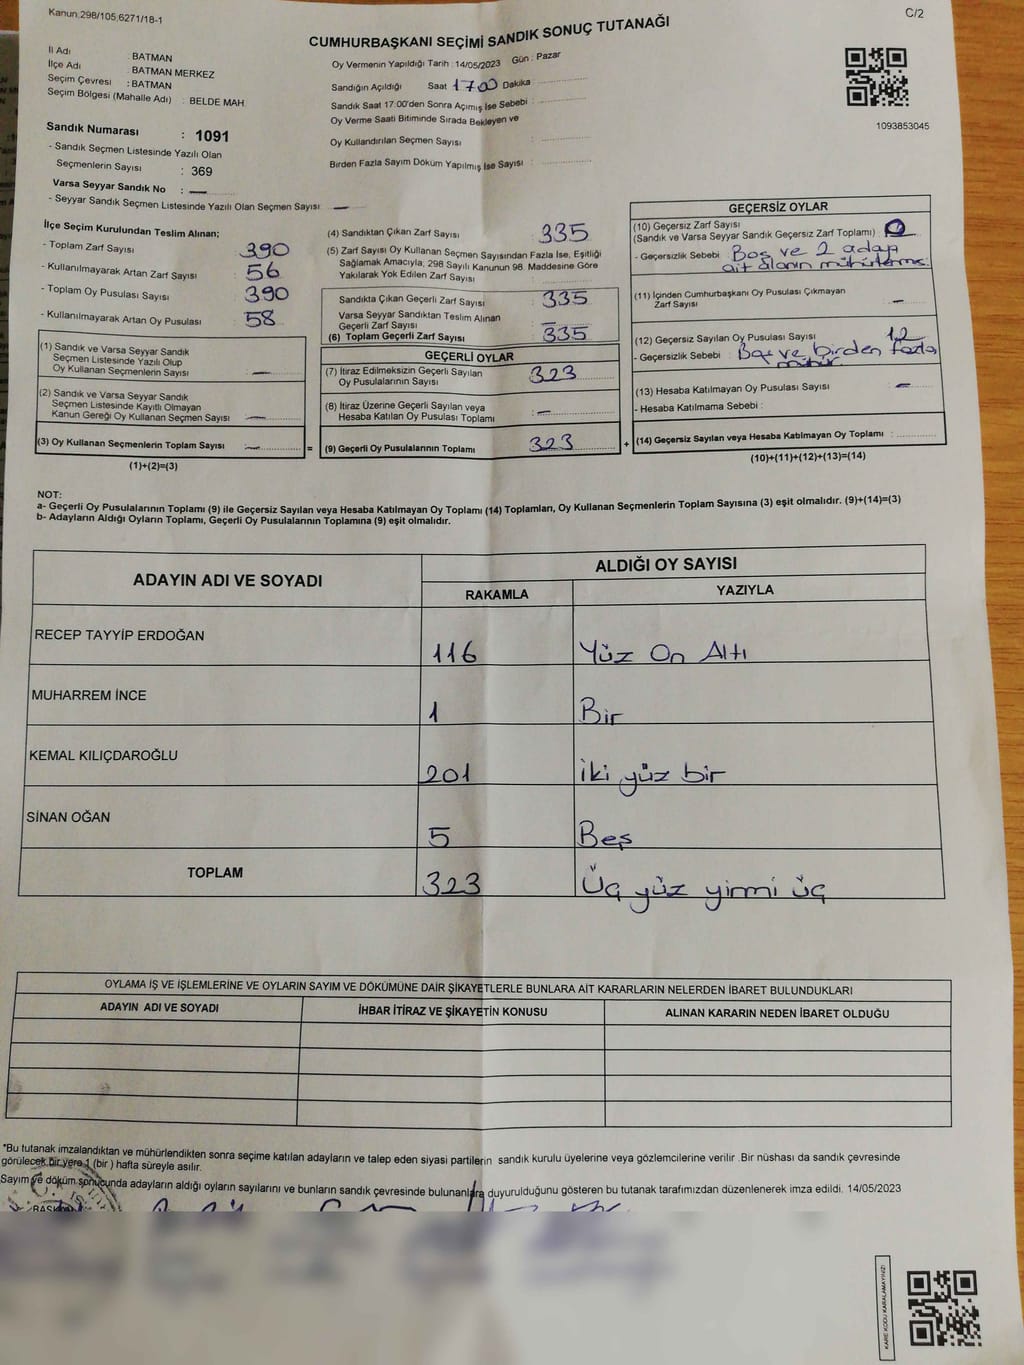 Kanun.298/105,6271/18-1
C/2
CUMHURBAŞKANI SEÇİMİ SANDIK SONUÇ TUTANAĞI
İl Adı : BATMAN
İlçe Adı : BATMAN MERKEZ
Seçim Çevresi : BATMAN
Seçim Bölgesi (Mahalle Adı) : BELDE MAH.
Sandık Numarası : 1091
- Sandık Seçmen Listesinde Yazılı Olan
Seçmenlerin Sayısı : 369
Varsa Seyyar Sandık No :
- Seyyar Sandık Seçmen Listesinde Yazılı Olan Seçmen Sayısı :
Oy Vermenin Yapıldığı Tarih : 14/05/2023 Gün : Pazar
Sandığın Açıldığı Saat 17.00 Dakika
Sandık Saat 17:00'den Sonra Açımış İse Sebebi :
Oy Verme Saati Bitiminde Sırada Bekleyen ve
Oy Kullandırılan Seçmen Sayısı :
Birden Fazla Sayım Döküm Yapılmış İse Sayısı :
1093853045
İlçe Seçim Kurulundan Teslim Alınan;
- Toplam Zarf Sayısı : 390
- Kullanılmayarak Artan Zarf Sayısı : 56
- Toplam Oy Pusulası Sayısı : 390
- Kullanılmayarak Artan Oy Pusulası : 58
(1) Sandık ve Varsa Seyyar Sandık
Seçmen Listesinde Yazılı Olup
Oy Kullanan Seçmenlerin Sayısı : —
(2) Sandık ve Varsa Seyyar Sandık
Seçmen Listesinde Kayıtlı Olmayan
Kanun Gereği Oy Kullanan Seçmen Sayısı : —
(3) Oy Kullanan Seçmenlerin Toplam Sayısı : —
(1)+(2)=(3)
=
(4) Sandıktan Çıkan Zarf Sayısı : 335
(5) Zarf Sayısı Oy Kullanan Seçmen Sayısından Fazla İse, Eşitliği
Sağlamak Amacıyla, 298 Sayılı Kanunun 98. Maddesine Göre
Yakılarak Yok Edilen Zarf Sayısı :
Sandıkta Çıkan Geçerli Zarf Sayısı : 335
Varsa Seyyar Sandıktan Teslim Alınan
Geçerli Zarf Sayısı : —
(6) Toplam Geçerli Zarf Sayısı : 335
GEÇERLİ OYLAR
(7) İtiraz Edilmeksizin Geçerli Sayılan
Oy Pusulalarının Sayısı : 323
(8) İtiraz Üzerine Geçerli Sayılan veya
Hesaba Katılan Oy Pusulası Toplamı : —
(9) Geçerli Oy Pusulalarının Toplamı : 323
+
GEÇERSİZ OYLAR
(10) Geçersiz Zarf Sayısı
(Sandık ve Varsa Seyyar Sandık Geçersiz Zarf Toplamı) : 0
- Geçersizlik Sebebi : Boş ve 2 aday
ait alanın mühürleme.
(11) İçinden Cumhurbaşkanı Oy Pusulası Çıkmayan
Zarf Sayısı : —
(12) Geçersiz Sayılan Oy Pusulası Sayısı : 12
- Geçersizlik Sebebi : Boş ve birden fazla
mühür.
(13) Hesaba Katılmayan Oy Pusulası Sayısı : —
- Hesaba Katılmama Sebebi :
(14) Geçersiz Sayılan veya Hesaba Katılmayan Oy Toplamı :
(10)+(11)+(12)+(13)=(14)
NOT:
a- Geçerli Oy Pusulalarının Toplamı (9) ile Geçersiz Sayılan veya Hesaba Katılmayan Oy Toplamı (14) Toplamları, Oy Kullanan Seçmenlerin Toplam Sayısına (3) eşit olmalıdır. (9)+(14)=(3)
b- Adayların Aldığı Oyların Toplamı, Geçerli Oy Pusulalarının Toplamına (9) eşit olmalıdır.
ADAYIN ADI VE SOYADI
ALDIĞI OY SAYISI
RAKAMLA YAZIYLA
RECEP TAYYİP ERDOĞAN 116 Yüz On Altı
MUHARREM İNCE 1 Bir
KEMAL KILIÇDAROĞLU 201 İki yüz bir
SİNAN OĞAN 5 Beş
TOPLAM 323 Üç yüz yirmi üç
OYLAMA İŞ VE İŞLEMLERİNE VE OYLARIN SAYIM VE DÖKÜMÜNE DAİR ŞİKAYETLERLE BUNLARA AİT KARARLARIN NELERDEN İBARET BULUNDUKLARI
ADAYIN ADI VE SOYADI İHBAR İTİRAZ VE ŞİKAYETİN KONUSU ALINAN KARARIN NEDEN İBARET OLDUĞU
*Bu tutanak imzalandıktan ve mühürlendikten sonra seçime katılan adayların ve talep eden siyasi partilerin sandık kurulu üyelerine veya gözlemcilerine verilir .Bir nüshası da sandık çevresinde
görülecek bir yere 1 (bir ) hafta süreyle asılır.
Sayım ve döküm sonucunda adayların aldığı oyların sayılarını ve bunların sandık çevresinde bulunanlara duyurulduğunu gösteren bu tutanak tarafımızdan düzenlenerek imza edildi. 14/05/2023
KARE KODU KARALAMAYINIZ!